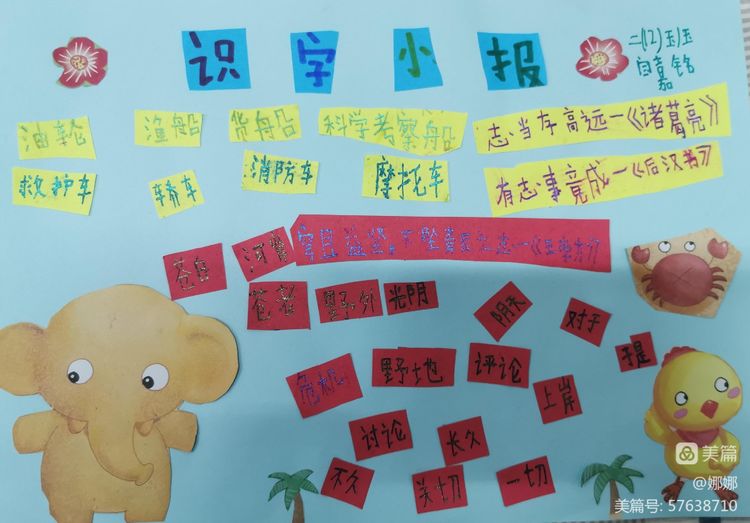 识字小报
二(12)班
白嘉铭
油轮 渔船 货船 科学考察船 志当存高远一《诸葛亮》
救护车 轿车 消防车 摩托车 有志事竟成一《后汉书》
苍白 河岸 穷且益坚,不坠青云之志一
苍老 野外 光阴 阴天 对于
危机 野地 评论 于是
上岸
讨论 长久
不久 关切 一切
美篇
@娜娜
美篇号: 57638710